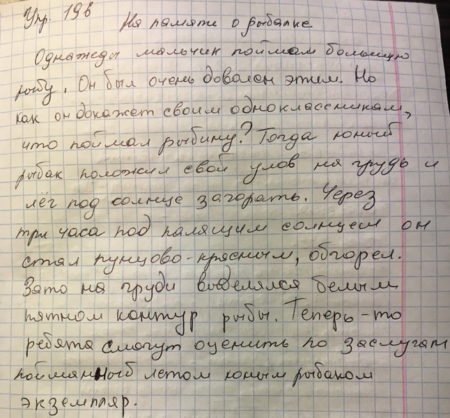 Упр. 198 На память о рыбалке
Однажды мальчик поймал большую
рыбу. Он был очень доволен этим. Но
как он докажет своим одноклассникам,
что поймал рыбину? Тогда юный
рыбак положил свой улов на грудь и
лёг под солнце загорать. Через
три часа под палящим солнцем он
стал пунцово-красным, обгорел.
Зато на груди выделялся белым
пятном контур рыбы. Теперь-то
ребята смогут оценить по заслугам
пойманный летом юным рыбаком
экземпляр.